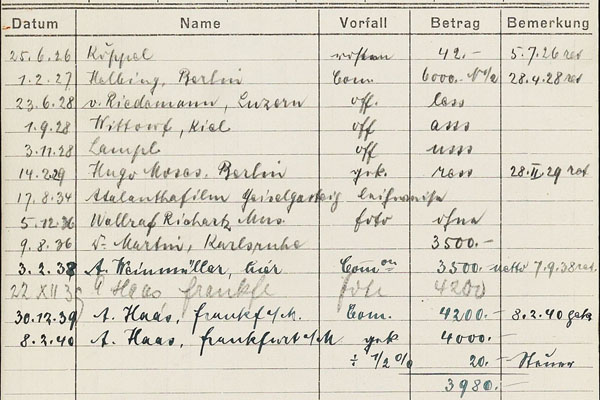 Datum Name Vorfall Betrag Bemerkung
25.6.26 Köppel 42.- 5.7.26 ret
1.2.27 Helbing, Berlin Com. 6000.- 28.4.28 ret
23.6.28 v. Riedemann, Luzern off.
1.9.28 Wittorf, Kiel off
3.11.28 Lampl off
14.2.29 Hugo Moses, Berlin gek. 28.II.29 ret
17.8.34 Atalanthafilm Geiselgasteig leihweise
5.12.36 Wallraf Richartz Mus. foto ohne
9.8.36 Dr. Martin, Karlsruhe 3500.-
3.2.38 A. Weinmüller, hier Com 3500.- netto 7.9.38 ret.
22 XII 39 A Haas frankf foto 4200
30.12.39 A. Haas, frankf a/M. Com. 4200.- 8.2.40 gek
8.2.40 A. Haas, frankfurt a/M gek 4000.-
÷ 1/2 % 20.- Steuer
3980.-